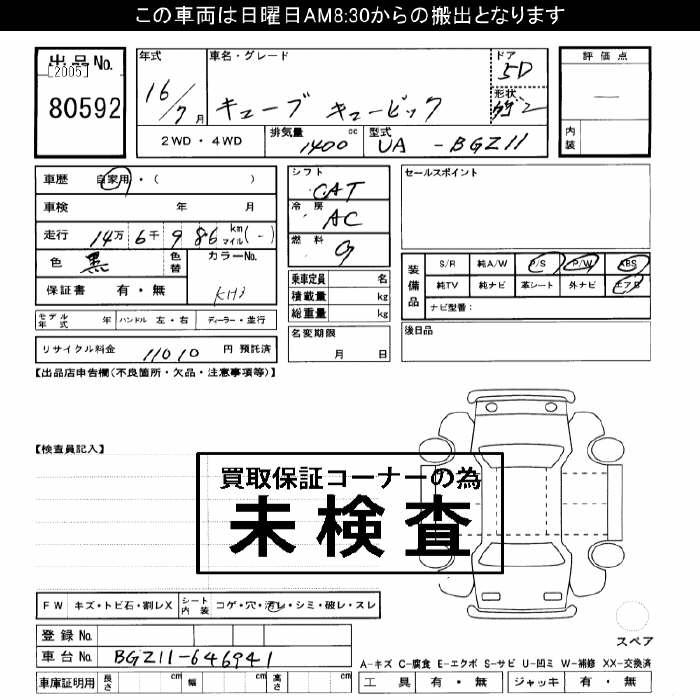 この車両は日曜日AM8:30からの搬出となります
出品No.
[2005]
80592
年式
16/7月
車名・グレード
キューブ キュービック
ドア
5D
形状
評価点
—
内装
2WD・4WD
排気量
1400 cc
型式
UA - BGZ11
車歴 自家用・( )
車検 年 月
走行 14万 6千 986 km マイル (-)
色 黒 色替
カラーNo.
KH3
保証書 有・無
シフト
CAT
冷房
AC
燃料
G
乗車定員 名
積載量 kg
総重量 kg
セールスポイント
装備品
S/R 純A/W P/S P/W ABS
純TV 純ナビ 革シート 外ナビ エアB
ナビ型番:
モデル年式 年 ハンドル 左・右 ディーラー・並行
名変期限
月 日
後日品
リサイクル料金 11010 円 預託済
【出品店申告欄(不良箇所・欠品・注意事項等)】
【検査員記入】
買取保証コーナーの為
未検査
FW キズ・トビ石・割レX シート内装 コゲ・穴・汚レ・シミ・破レ・スレ
登録No.
車台No. BGZ11-646941
車庫証明用 長さ cm 幅 cm 高さ cm
スペア
A-キズ C-腐食 E-エクボ S-サビ U-凹ミ W-補修 XX-交換済
工具 有・無 ジャッキ 有・無